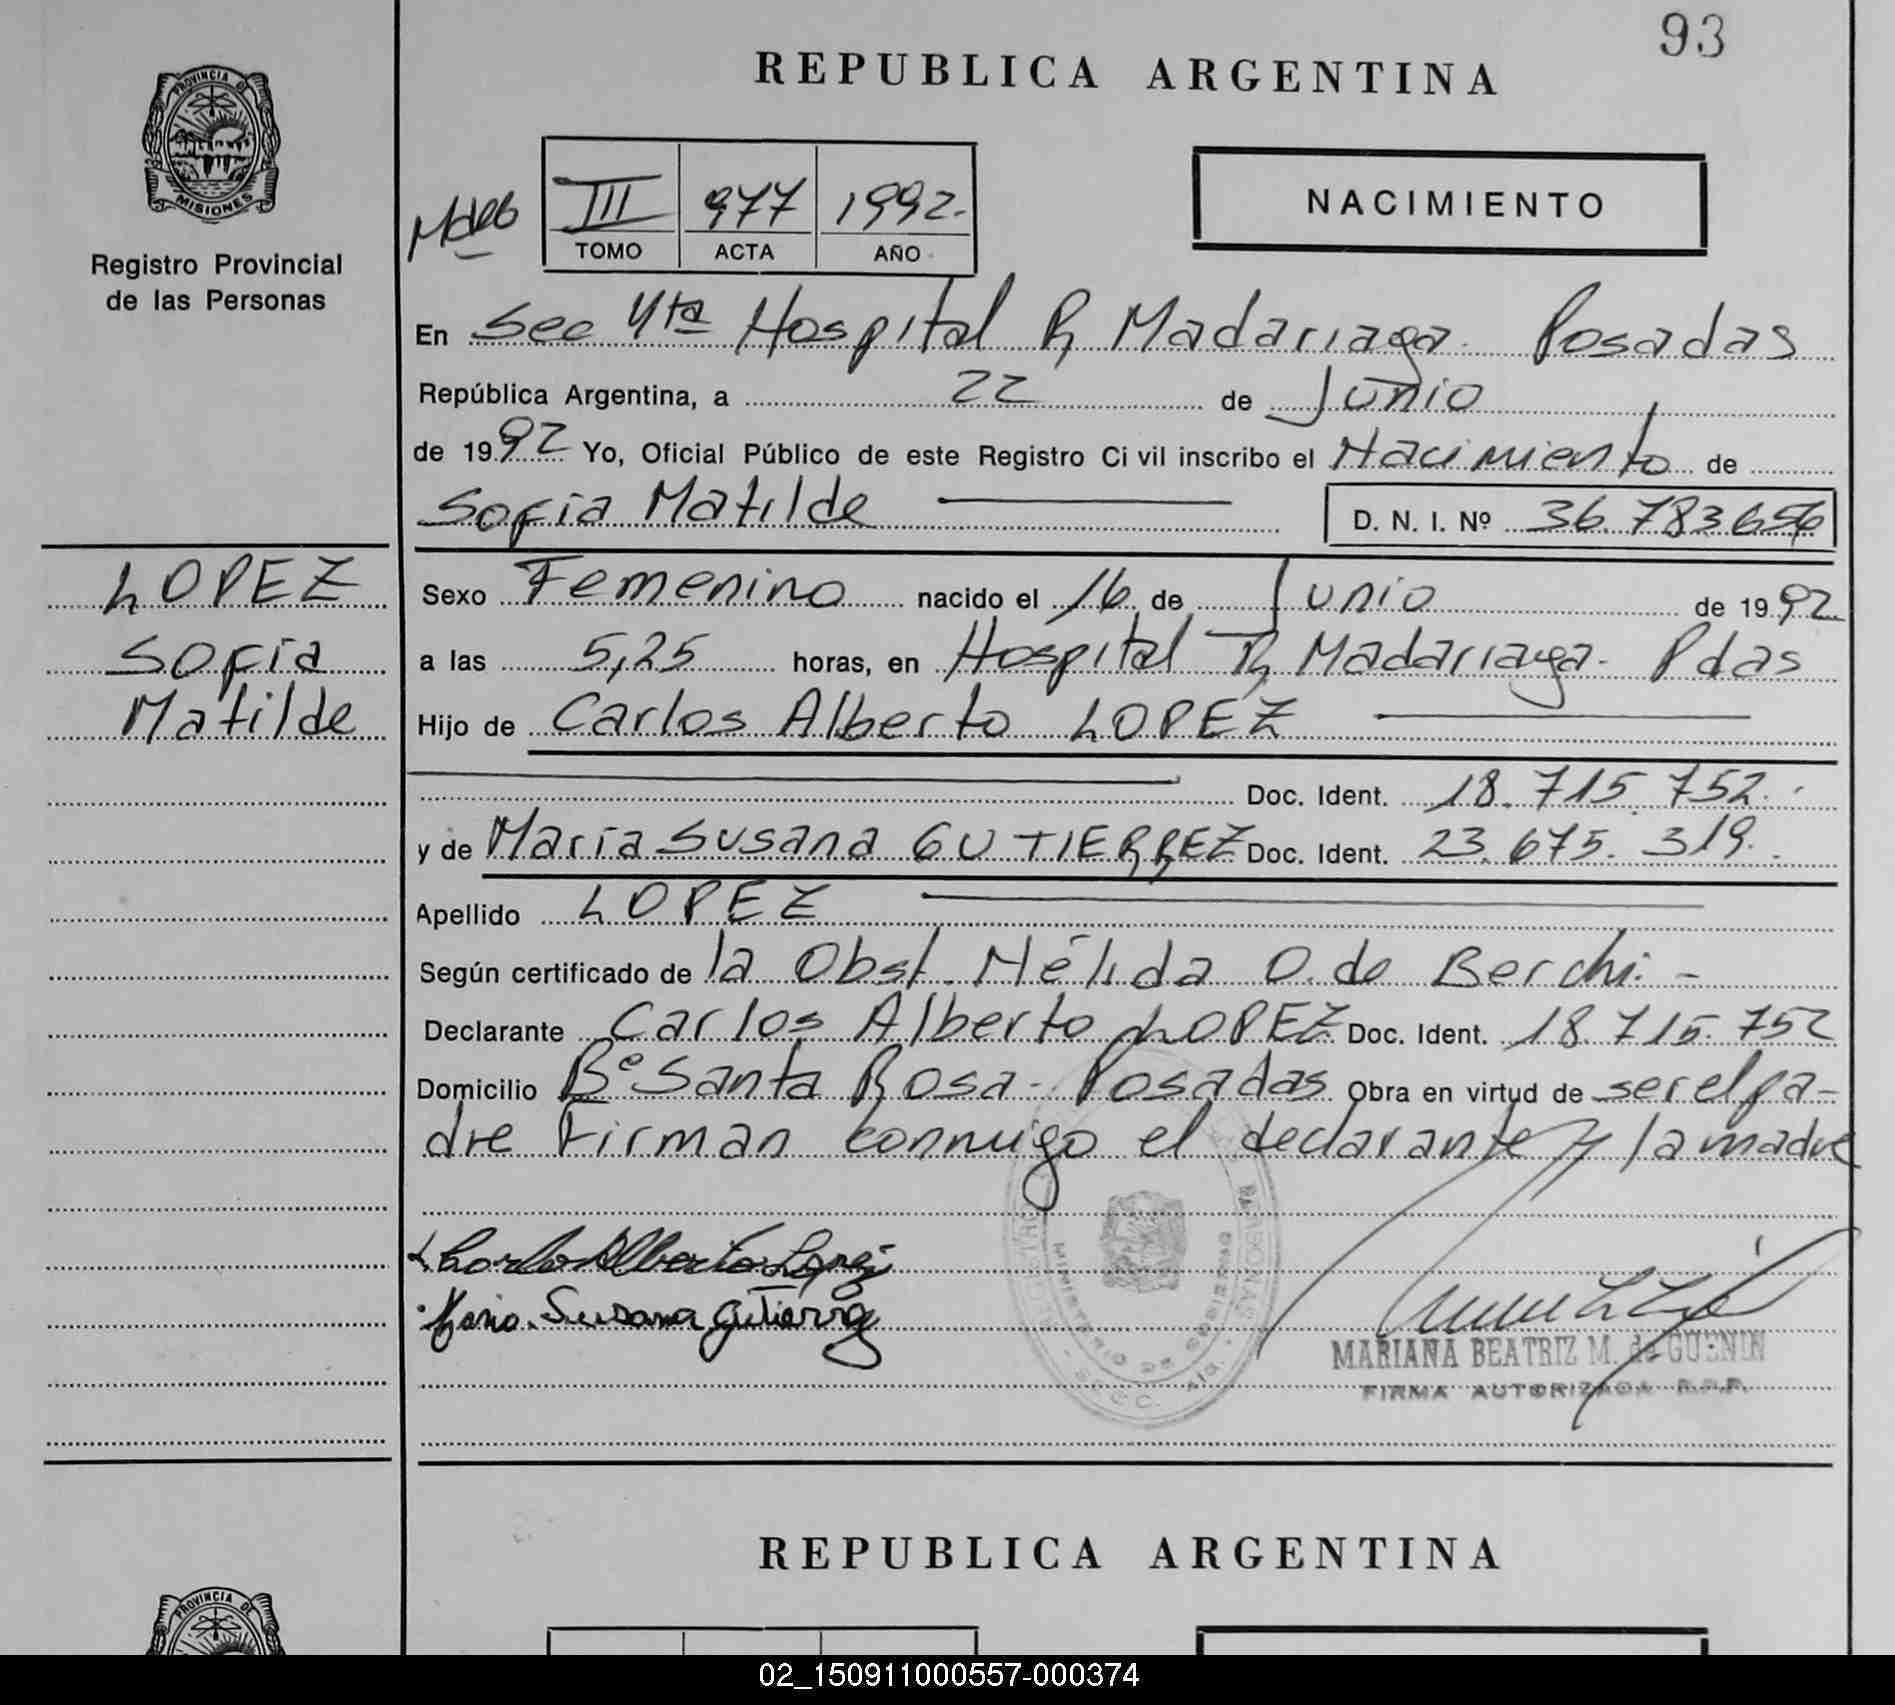 93
REPUBLICA ARGENTINA
PROVINCIA DE
MISIONES
Registro Provincial
de las Personas
III 977 1992.-
TOMO ACTA AÑO
NACIMIENTO
En Sec 4ta Hospital R. Madariaga. Posadas
República Argentina, a 22 de Junio
de 1992 Yo, Oficial Público de este Registro Civil inscribo el Nacimiento de
Sofía Matilde D. N. I. Nº 36.783.656
LOPEZ
Sofía
Matilde
Sexo Femenino nacido el 16 de Junio de 1992
a las 5,25 horas, en Hospital R. Madariaga. Pdas
Hijo de Carlos Alberto LOPEZ
Doc. Ident. 18.715.752.
y de María Susana GUTIERREZ Doc. Ident. 23.675.319.
Apellido LOPEZ
Según certificado de la Obst. Nélida O. de Berchi.-
Declarante Carlos Alberto LOPEZ Doc. Ident. 18.715.752
Domicilio Bº Santa Rosa - Posadas Obra en virtud de ser el pa-
dre Firman conmigo el declarante y la madre
Carlos Alberto Lopez
Maria Susana Gutierrez
MINISTERIO DE GOBIERNO
MARIANA BEATRIZ M. de GUENIN
FIRMA AUTORIZADA R.P.P.
REPUBLICA ARGENTINA
PROVINCIA DE
02_150911000557-000374